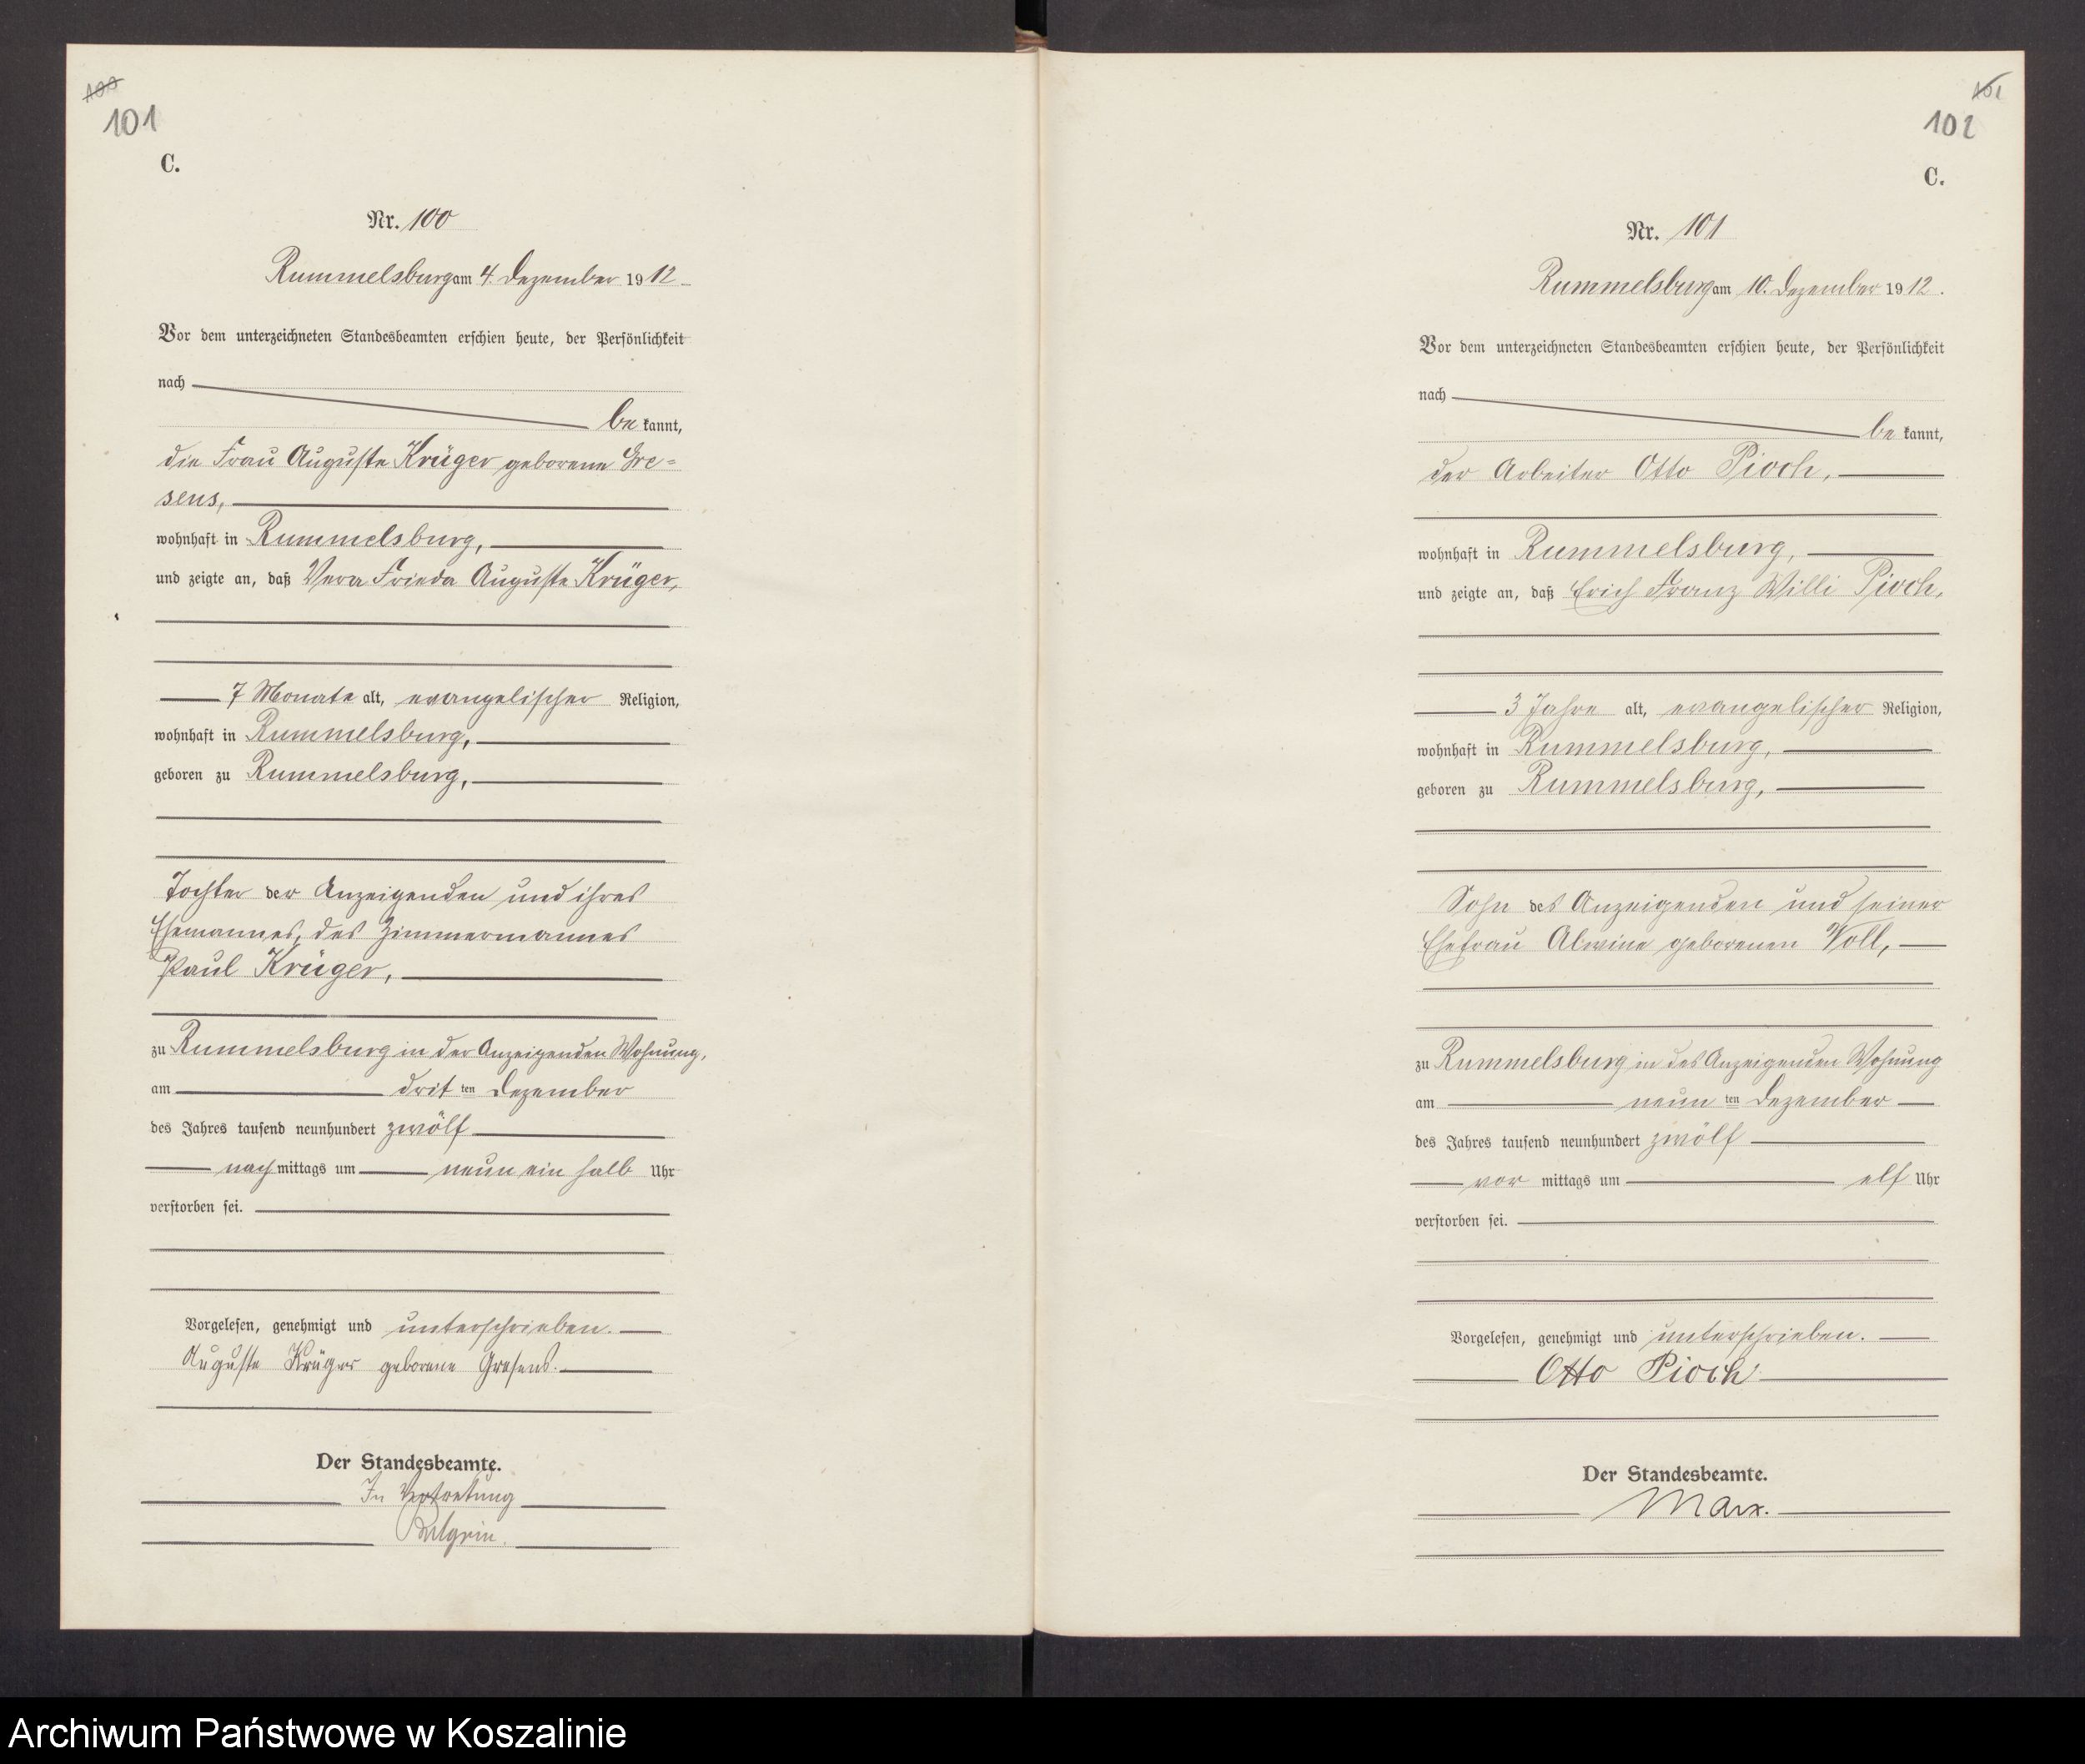 100
101
C.
Nr. 100
Rummelsburg am 4. Dezember 1912
Vor dem unterzeichneten Standesbeamten erschien heute, der Persönlichkeit
nach
be kannt,
die Frau Auguste Krüger geborene Gre=
sens,
wohnhaft in Rummelsburg,
und zeigte an, daß Vera Frieda Auguste Krüger,
7 Monate alt, evangelischer Religion,
wohnhaft in Rummelsburg,
geboren zu Rummelsburg,
Tochter der Anzeigenden und ihres
Ehemannes, des Zimmermannes
Paul Krüger,
zu Rummelsburg in der Anzeigenden Wohnung,
am drit ten Dezember
des Jahres tausend neunhundert zwölf
nach mittags um neun ein halb Uhr
verstorben sei.
Vorgelesen, genehmigt und unterschrieben.
Auguste Krüger geborene Gresens.
Der Standesbeamte.
In Vertretung
101
102
C.
Nr. 101
Rummelsburg am 10. Dezember 1912.
Vor dem unterzeichneten Standesbeamten erschien heute, der Persönlichkeit
nach
be kannt,
der Arbeiter Otto Pioch,
wohnhaft in Rummelsburg,
und zeigte an, daß Erich Franz Willi Pioch,
3 Jahre alt, evangelischer Religion,
wohnhaft in Rummelsburg,
geboren zu Rummelsburg,
Sohn des Anzeigenden und seiner
Ehefrau Alwine geborenen Voll,
zu Rummelsburg in des Anzeigenden Wohnung
am neun ten Dezember
des Jahres tausend neunhundert zwölf
vor mittags um elf Uhr
verstorben sei.
Vorgelesen, genehmigt und unterschrieben.
Otto Pioch
Der Standesbeamte.
Marx.
Archiwum Państwowe w Koszalinie